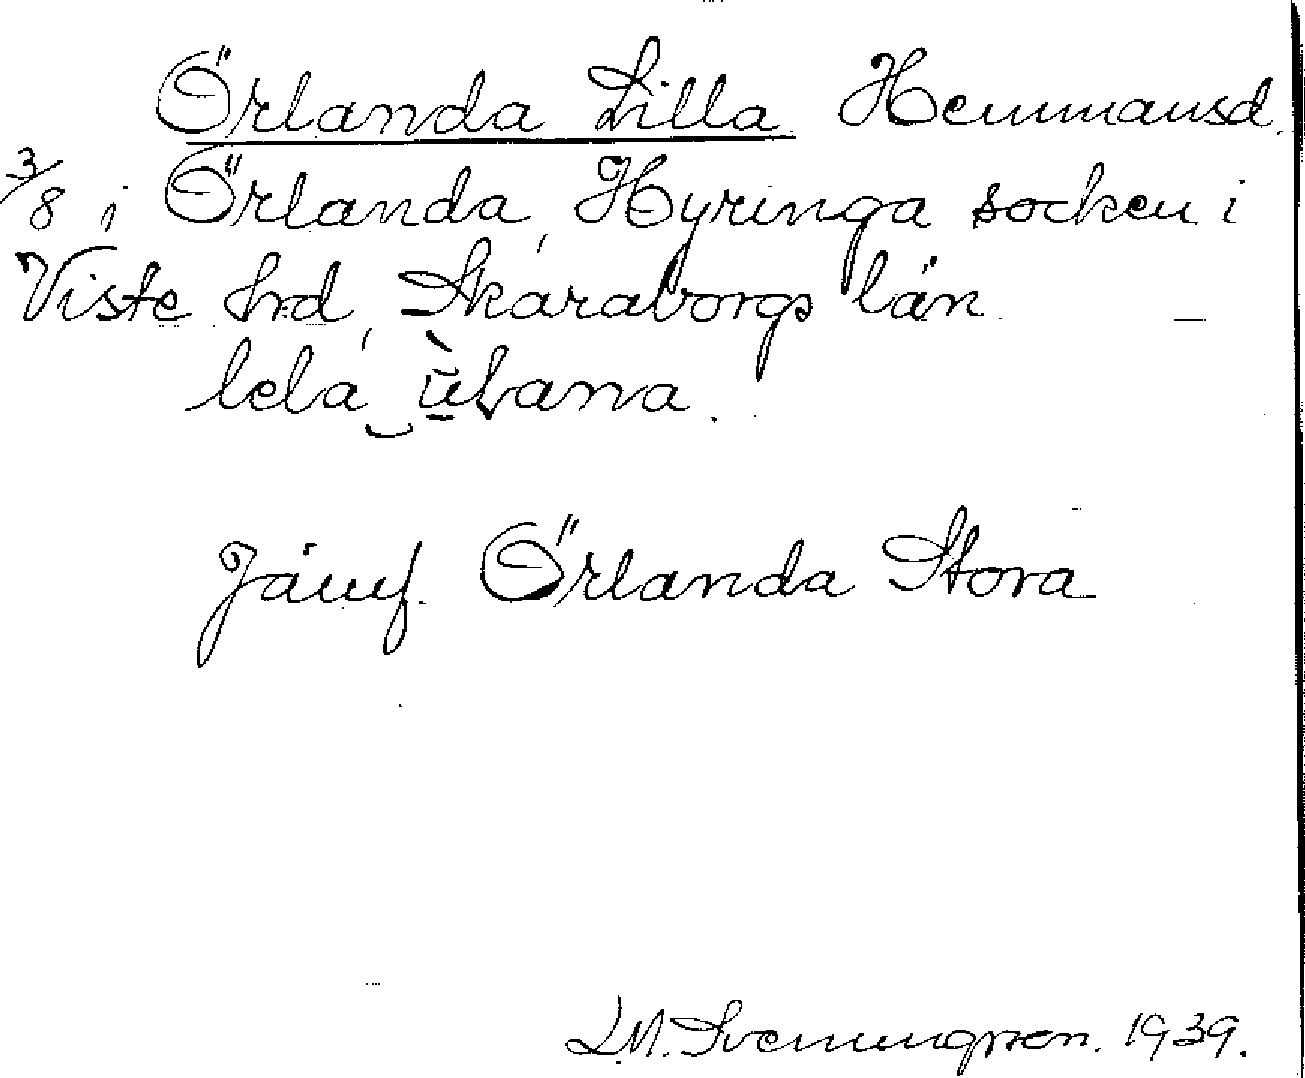 Örlanda Lilla Hemmansd.
3/8 i Örlanda, Hyringa socken i
Viste hrd, Skaraborgs län
Jämf. Örlanda Stora
I.M. Svenungsson. 1939.